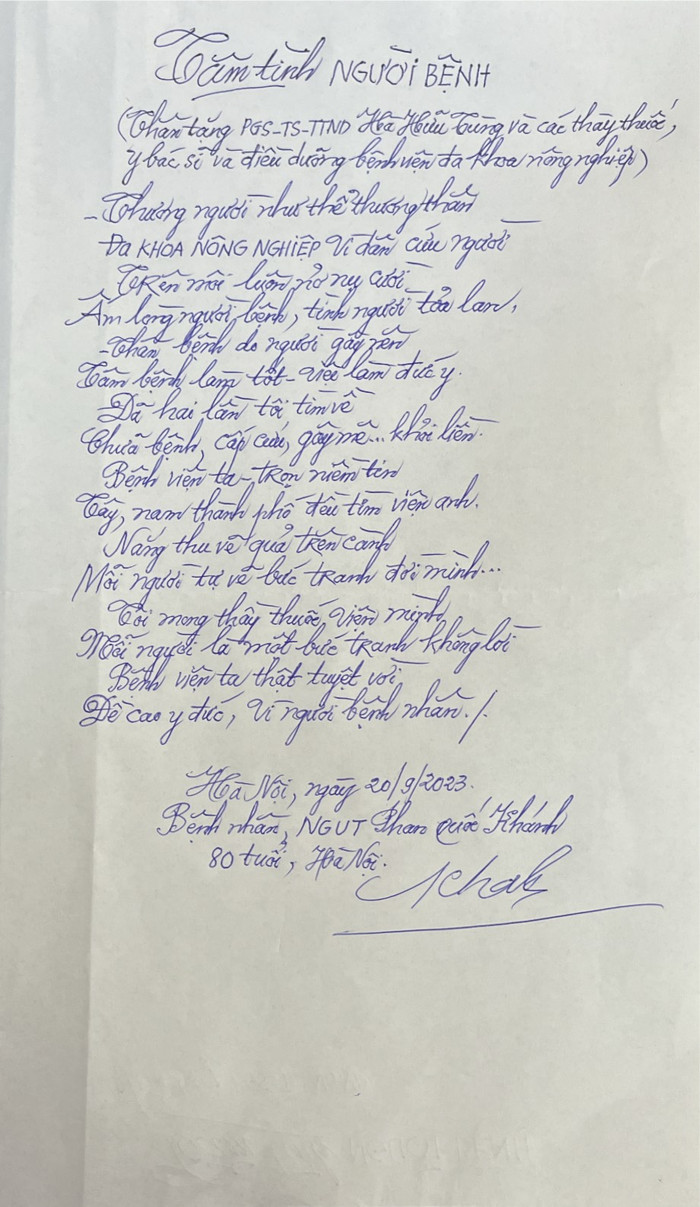 Tâm tình NGƯỜI BỆNH
(Thân tặng PGS-TS-TTND Hà Hữu Tùng và các thầy thuốc,
y bác sĩ và điều dưỡng bệnh viện đa khoa nông nghiệp)
- Thương người như thể thương thân
Đa KHOA NÔNG NGHIỆP Vì dân cứu người
Trên môi luôn nở nụ cười
Ấm lòng người bệnh, tình người tỏa lan,
- Thân bệnh do người gây nên
Tâm bệnh làm tốt - việc làm đức y.
Đã hai lần tôi tìm về
Chữa bệnh, cấp cứu, gây mê... khỏi liền.
Bệnh viện ta - trọn niềm tin
Tây, nam thành phố đều tìm viện anh.
Nắng thu về quả trên cành
Mỗi người tự vẽ bức tranh đời mình...
Tôi mong thầy thuốc, viện mình
Mỗi người là một bức tranh không lời
Bệnh viện ta thật tuyệt vời,
Đề cao y đức, Vì người bệnh nhân./.
Hà Nội, ngày 20/9/2023.
Bệnh nhân, NGƯT Phan Quốc Khánh
80 tuổi, Hà Nội.